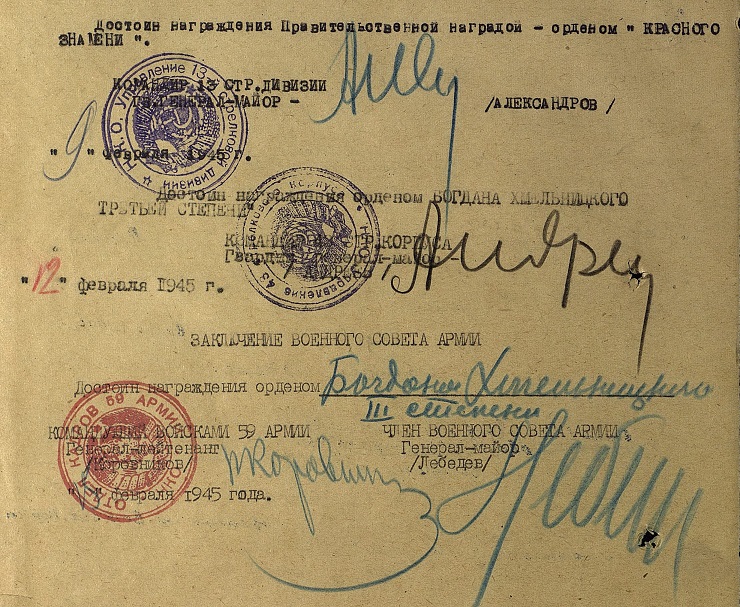 Достоин награждения Правительственной наградой - орденом " КРАСНОГО
ЗНАМЕНИ ".
КОМАНДИР 13 СТР.ДИВИЗИИ
ГВ.ГЕНЕРАЛ-МАЙОР -
/АЛЕКСАНДРОВ /
Н.К.О. Управление 13-й стрелковой дивизии
" 9 " февраля 1945 г.
Достоин награждения орденом БОГДАНА ХМЕЛЬНИЦКОГО
ТРЕТЬЕЙ СТЕПЕНИ"
КОМАНДИР СТР.КОРПУСА
Гвардии генерал-майор -
Андрее
Управление 43 стрелкового корпуса
"12" февраля 1945 г.
ЗАКЛЮЧЕНИЕ ВОЕННОГО СОВЕТА АРМИИ
Достоин награждения орденом Богдана Хмельницкого
III степени
КОМАНДУЮЩИЙ ВОЙСКАМИ 59 АРМИИ
Генерал-лейтенант
/Коровников/
ЧЛЕН ВОЕННОГО СОВЕТА АРМИИ
Генерал-майор
/Лебедев/
" " февраля 1945 года.
ОТДЕЛ КАДРОВ 59 АРМИИ